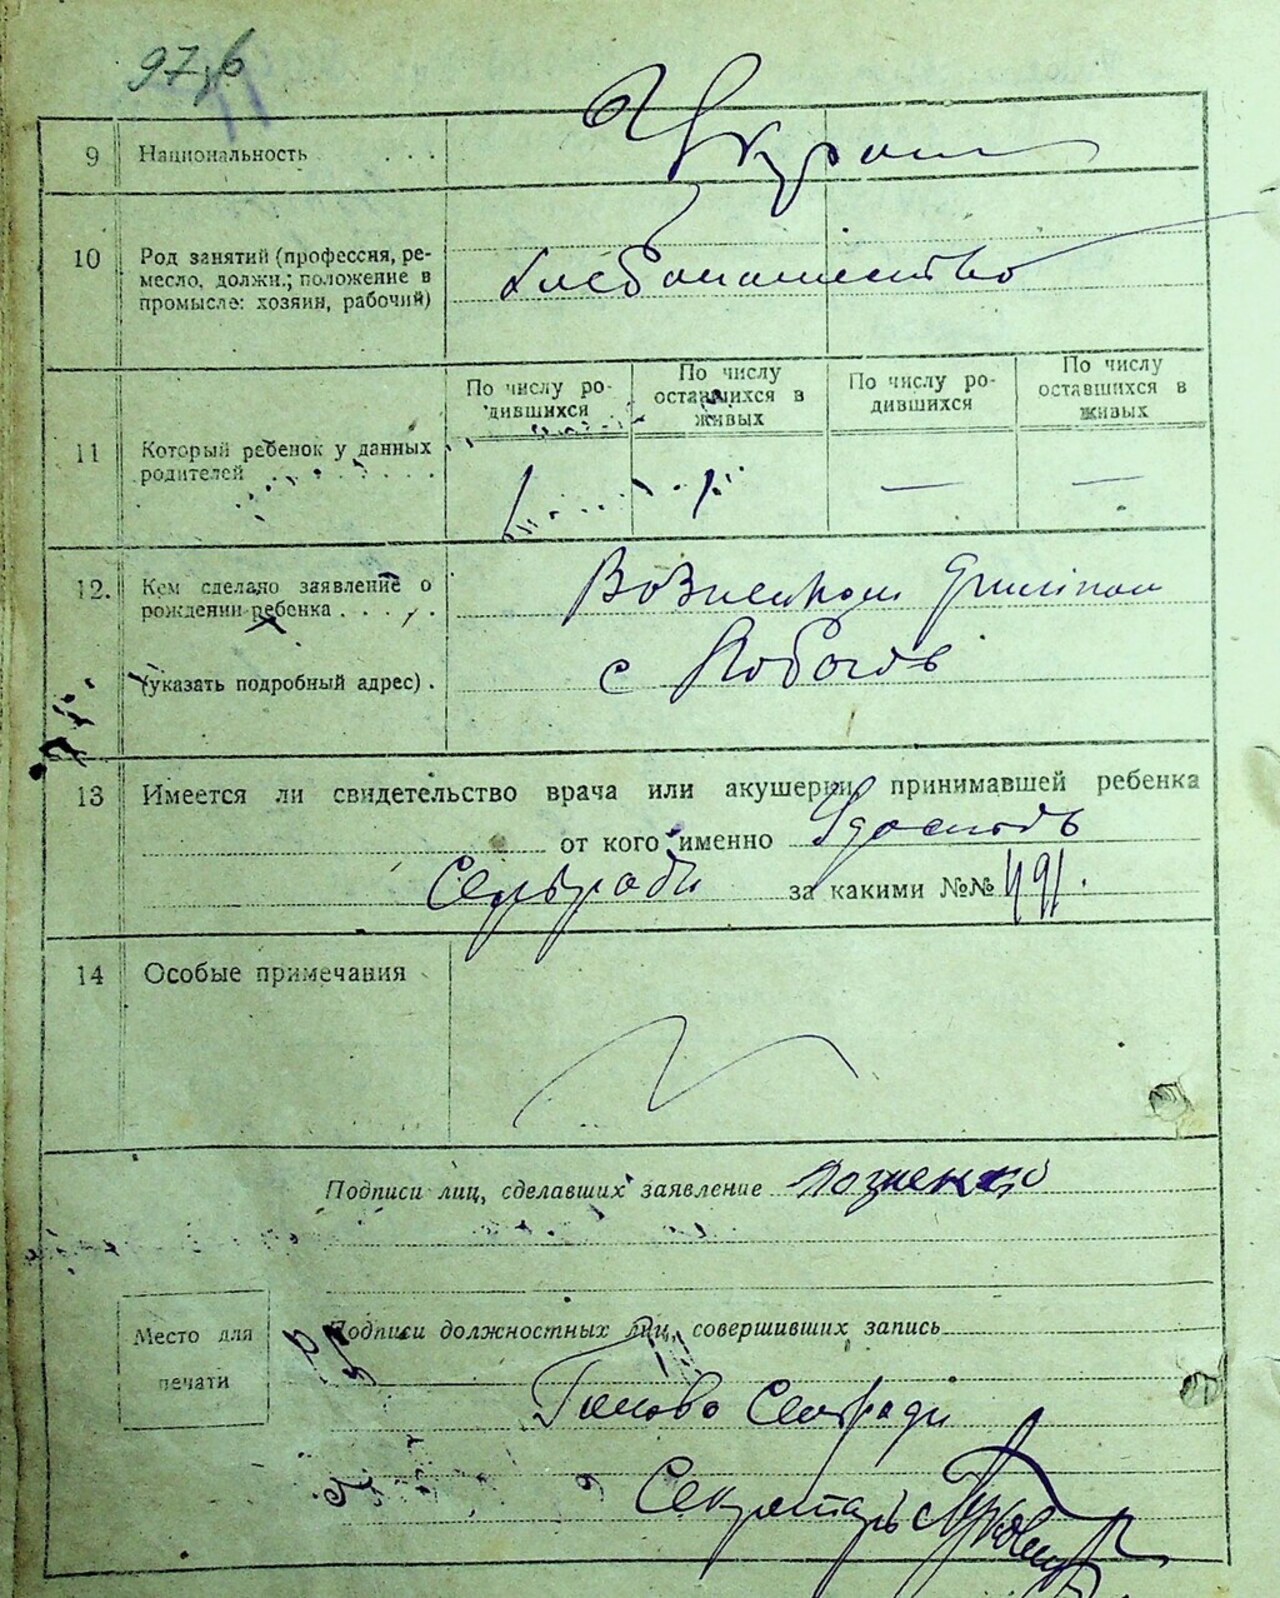 9 Национальность . . .
10 Род занятий (профессия, ре-
месло, должн.; положение в
промысле: хозяин, рабочий)
хлебопашество
По числу ро-
дившихся
По числу
оставшихся в
живых
По числу ро-
дившихся
По числу
оставшихся в
живых
11 Который ребенок у данных
родителей . . . . . . .
— —
12. Кем сделано заявление о
рождении ребенка . . . . .
(указать подробный адрес) .
с
13 Имеется ли свидетельство врача или акушерки, принимавшей ребенка
от кого именно
Сельради за какими №№ 491.
14 Особые примечания
Подписи лиц, сделавших заявление
Место для
печати
Подписи должностных лиц, совершивших запись
Голова Сельради
Секретарь